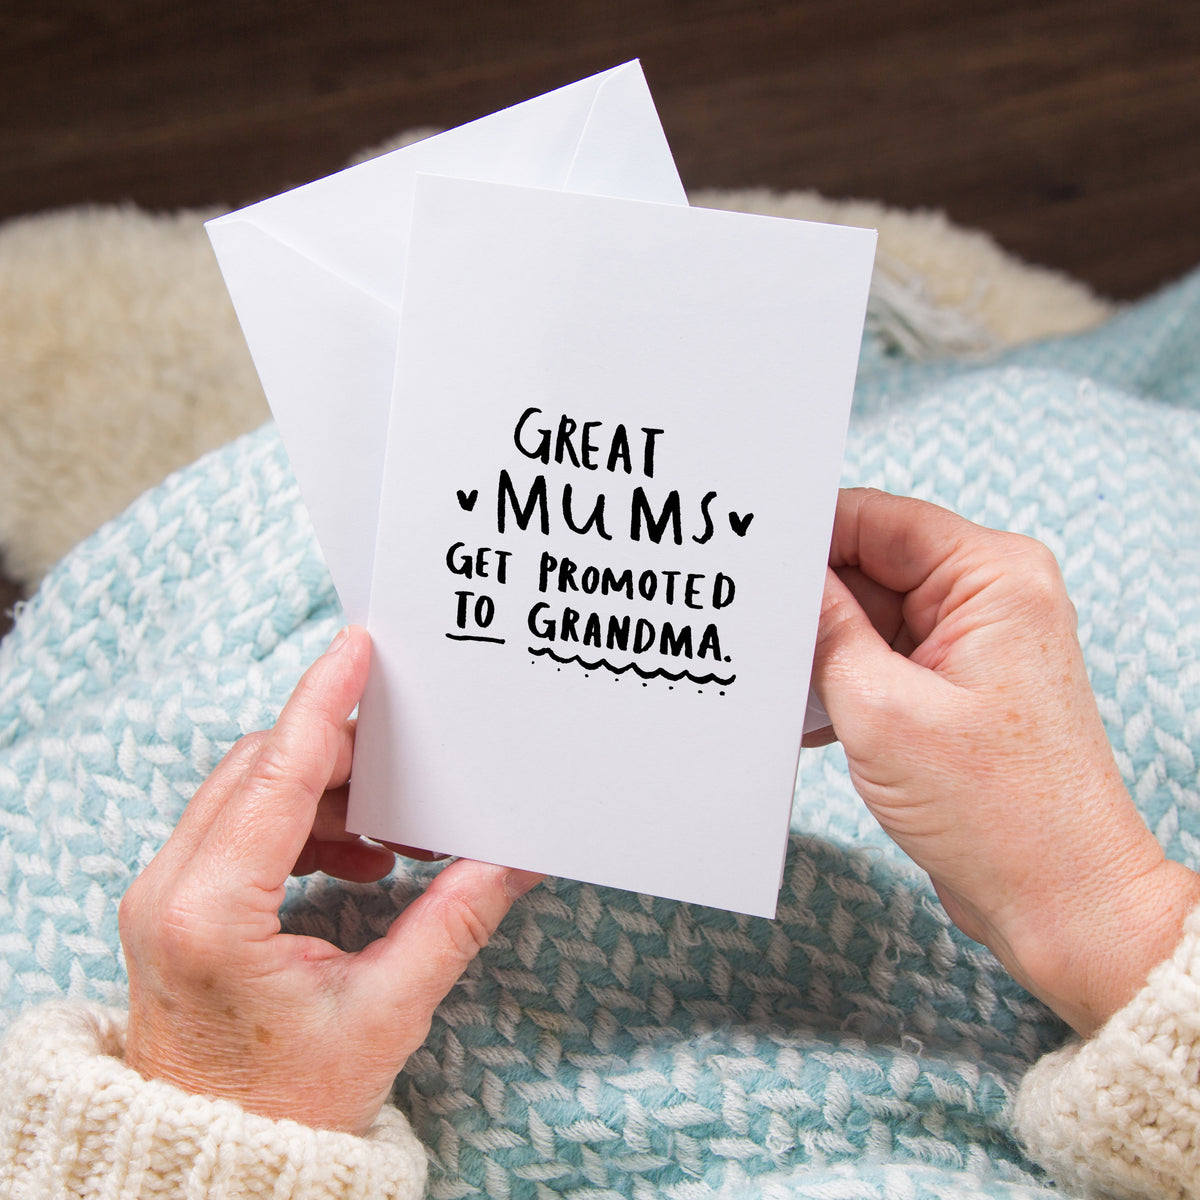 GREAT
MUMS
GET PROMOTED
TO GRANDMA.